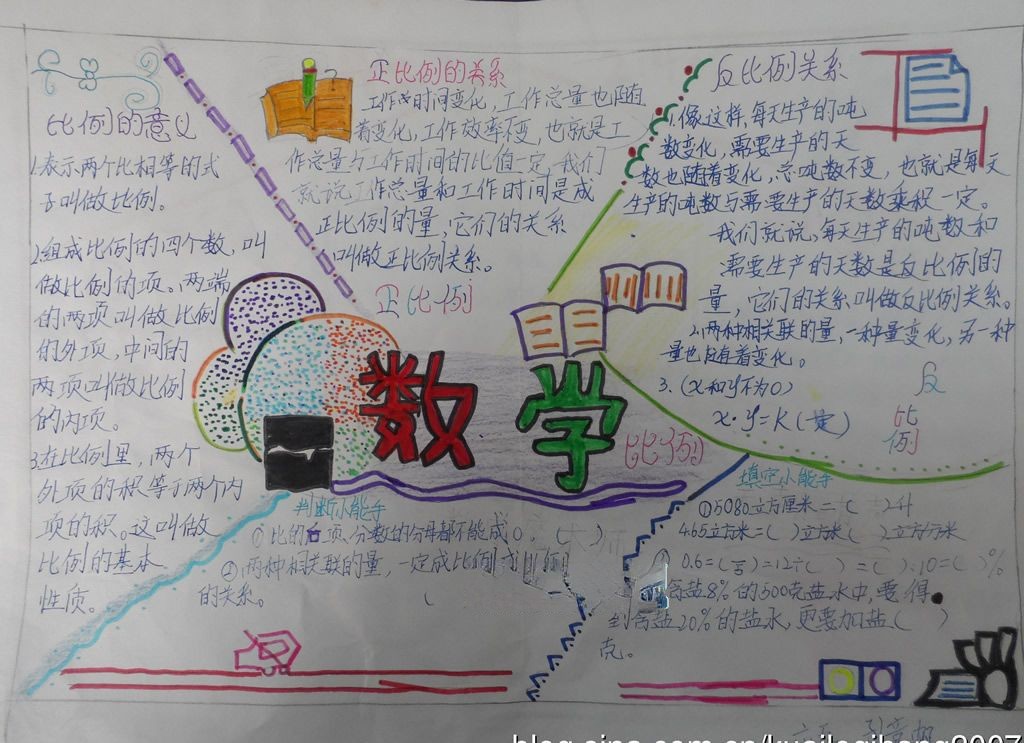 比例的意义
1.表示两个比相等的式
子叫做比例。
2.组成比例的四个数，叫
做比例的项。两端
的两项叫做比例
的外项，中间的
两项叫做比例
的内项。
3.在比例里，两个
外项的积等于两个内
项的积。这叫做
比例的基本
性质。
正比例的关系
工作总时间变化，工作总量也随
着变化，工作效率不变，也就是工
作总量与工作时间的比值一定，我们
就说工作总量和工作时间是成
正比例的量，它们的关系
叫做正比例关系。
正比例
反比例关系
1.像这样，每天生产的吨
数变化，需要生产的天
数也随着变化，总吨数不变，也就是每天
生产的吨数与需要生产的天数乘积一定。
我们就说，每天生产的吨数和
需要生产的天数是反比例的
量，它们的关系叫做反比例关系。
2.两种相关联的量，一种量变化，另一种
量也随着变化。
3.(x和y不为0)
x·y=K(一定)
反
比
例
数学
比例
判断小能手
①比的后项、分数的分母都不能成0。( )
②两种相关联的量，一定成比例或
的关系。 (
填空小能手
①5080立方厘米=( )升
4.65立方米=( )立方米( )立方分米
0.6=( )=12÷( )=( ):10=( )%
含盐8%的500克盐水中，要得
到含盐20%的盐水，更要加盐( )
克。
blog.sina.com.cn/kuailegibang2007